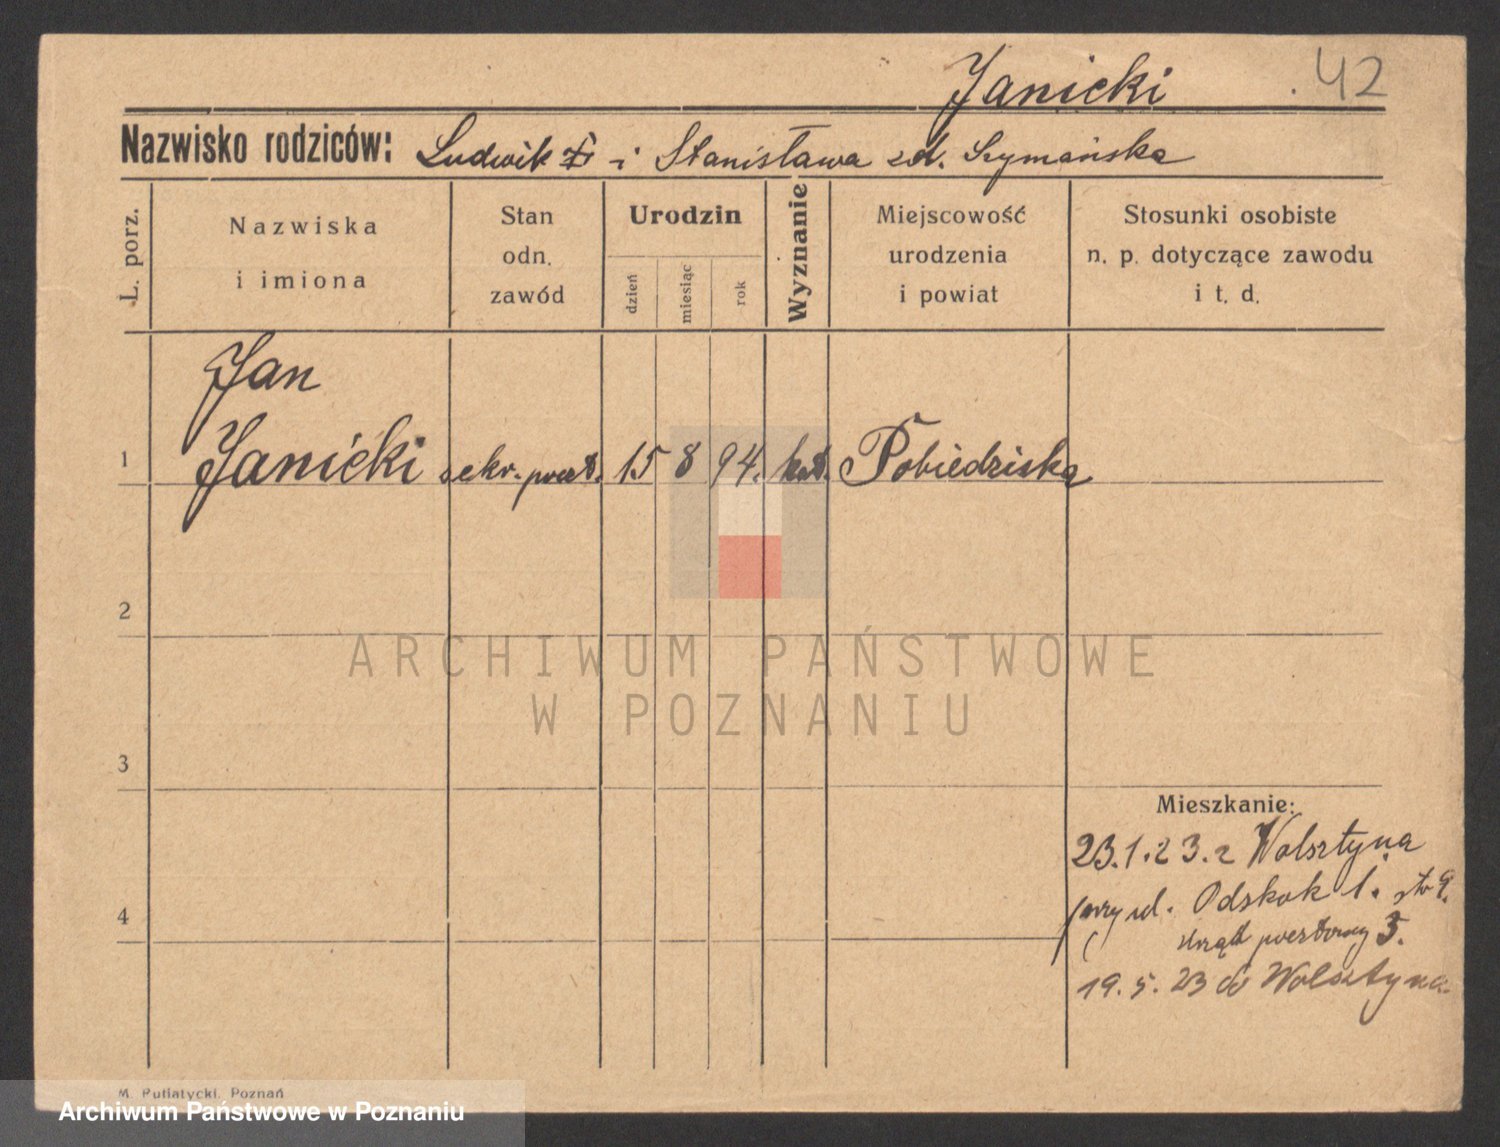 Janicki . 42
Nazwisko rodziców: Ludwik i Stanisława zd. Szymańska
L. porz.
Nazwiska
i imiona
Stan
odn.
zawód
Urodzin
dzień
miesiąc
rok
Wyznanie
Miejscowość
urodzenia
i powiat
Stosunki osobiste
n. p. dotyczące zawodu
i t. d.
Jan
1 Janicki sekr. poczt. 15 8 94. kat. Pobiedziska
2
ARCHIWUM PAŃSTWOWE
W POZNANIU
3
Mieszkanie:
23.1.23. z Wolsztyna
przy ul. Odskok 1.
4
urząd pocztowy 3.
19.5.23 do Wolsztyna
M. Putiatycki, Poznań
Archiwum Państwowe w Poznaniu